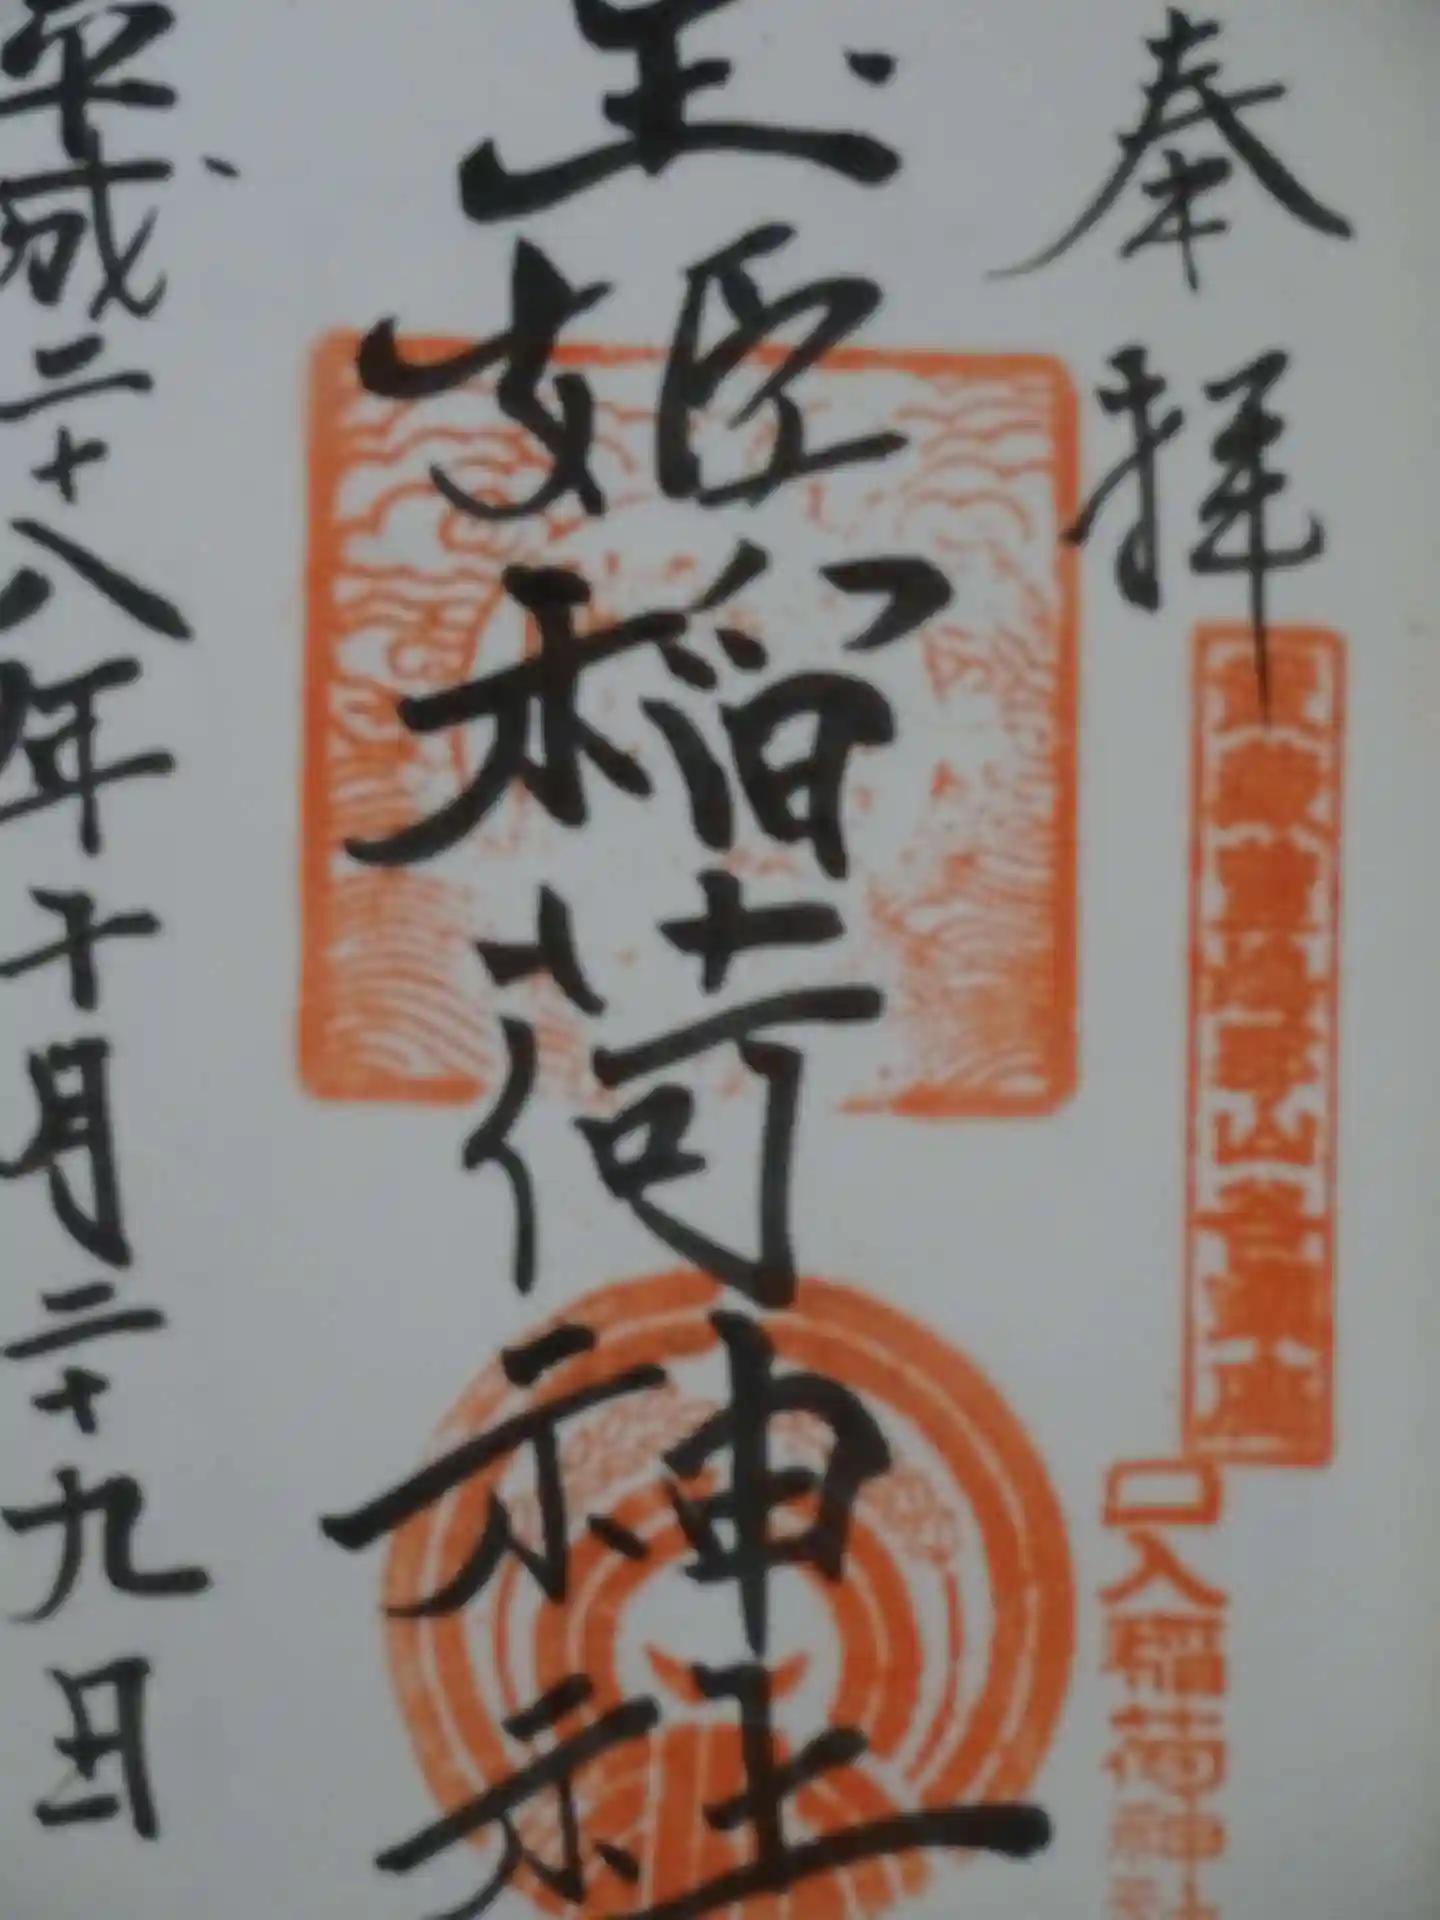 奉拝
玉姫稲荷神社
口入稲荷神社
平成二十八年十月二十九日